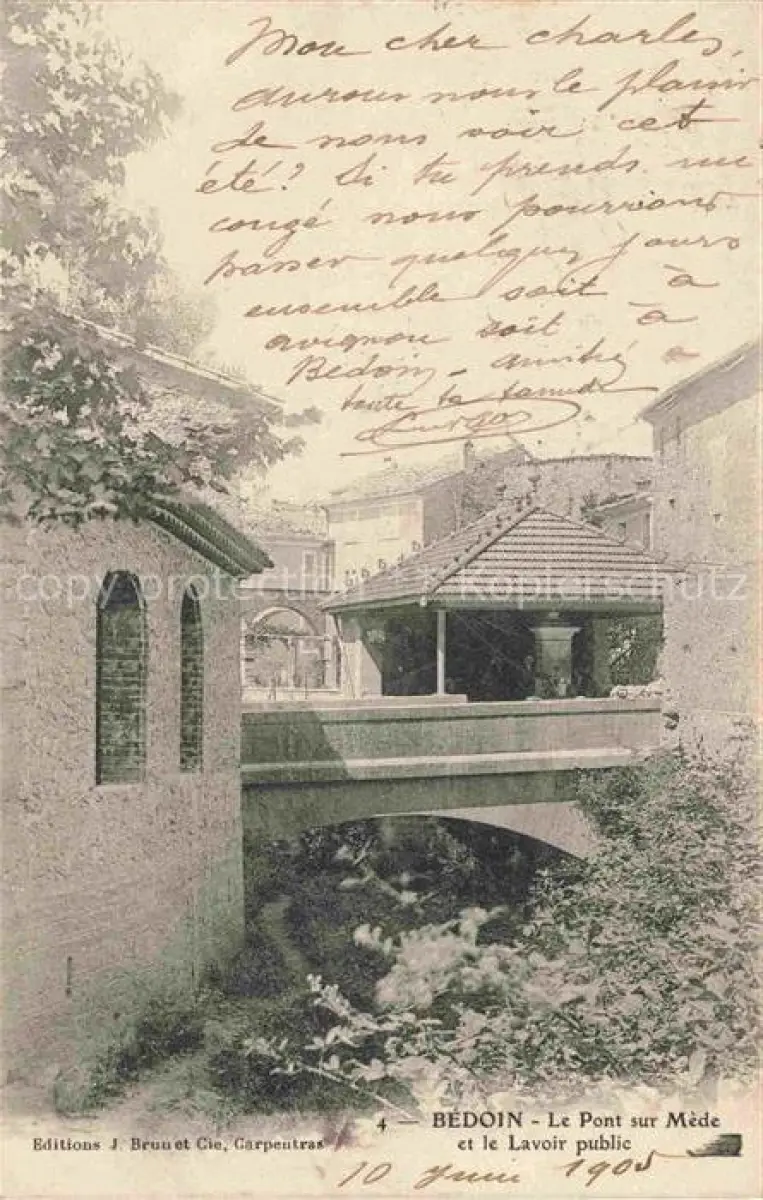 Mon cher Charles,
aurons nous le plaisir
de nous voir cet
été? Si tu prends un
congé nous pourrions
passer quelques jours
ensemble soit à
avignon soit à
Bédoin - amitié à
toute la famille
copyright protection Kopierschutz
4 — BÉDOIN - Le Pont sur Mède
et le Lavoir public
Editions J. Brun et Cie, Carpentras
10 Juin 1905